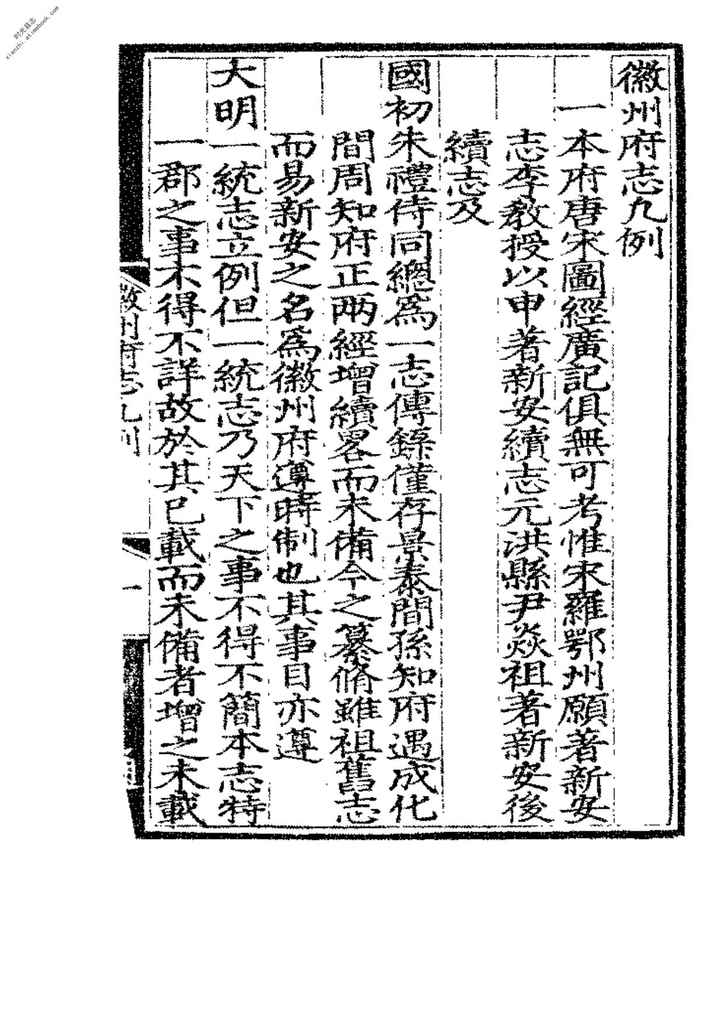 徽州府志凡例
一本府唐宋圖經廣記俱無可考惟宋羅鄂州願著新安
志李教授以申著新安續志元洪縣尹焱祖著新安後
續志及
國初朱禮侍同總爲一志傳錄僅存景泰間孫知府遇成化
間周知府正兩經增續畧而未備今之纂脩雖祖舊志
而易新安之名爲徽州府遵時制也其事目亦遵
大明一統志立例但一統志乃天下之事不得不簡本志特
一郡之事不得不詳故於其已載而未備者增之未載
徽州府志凡例
一
时光日志
xianzhi.atimebook.com